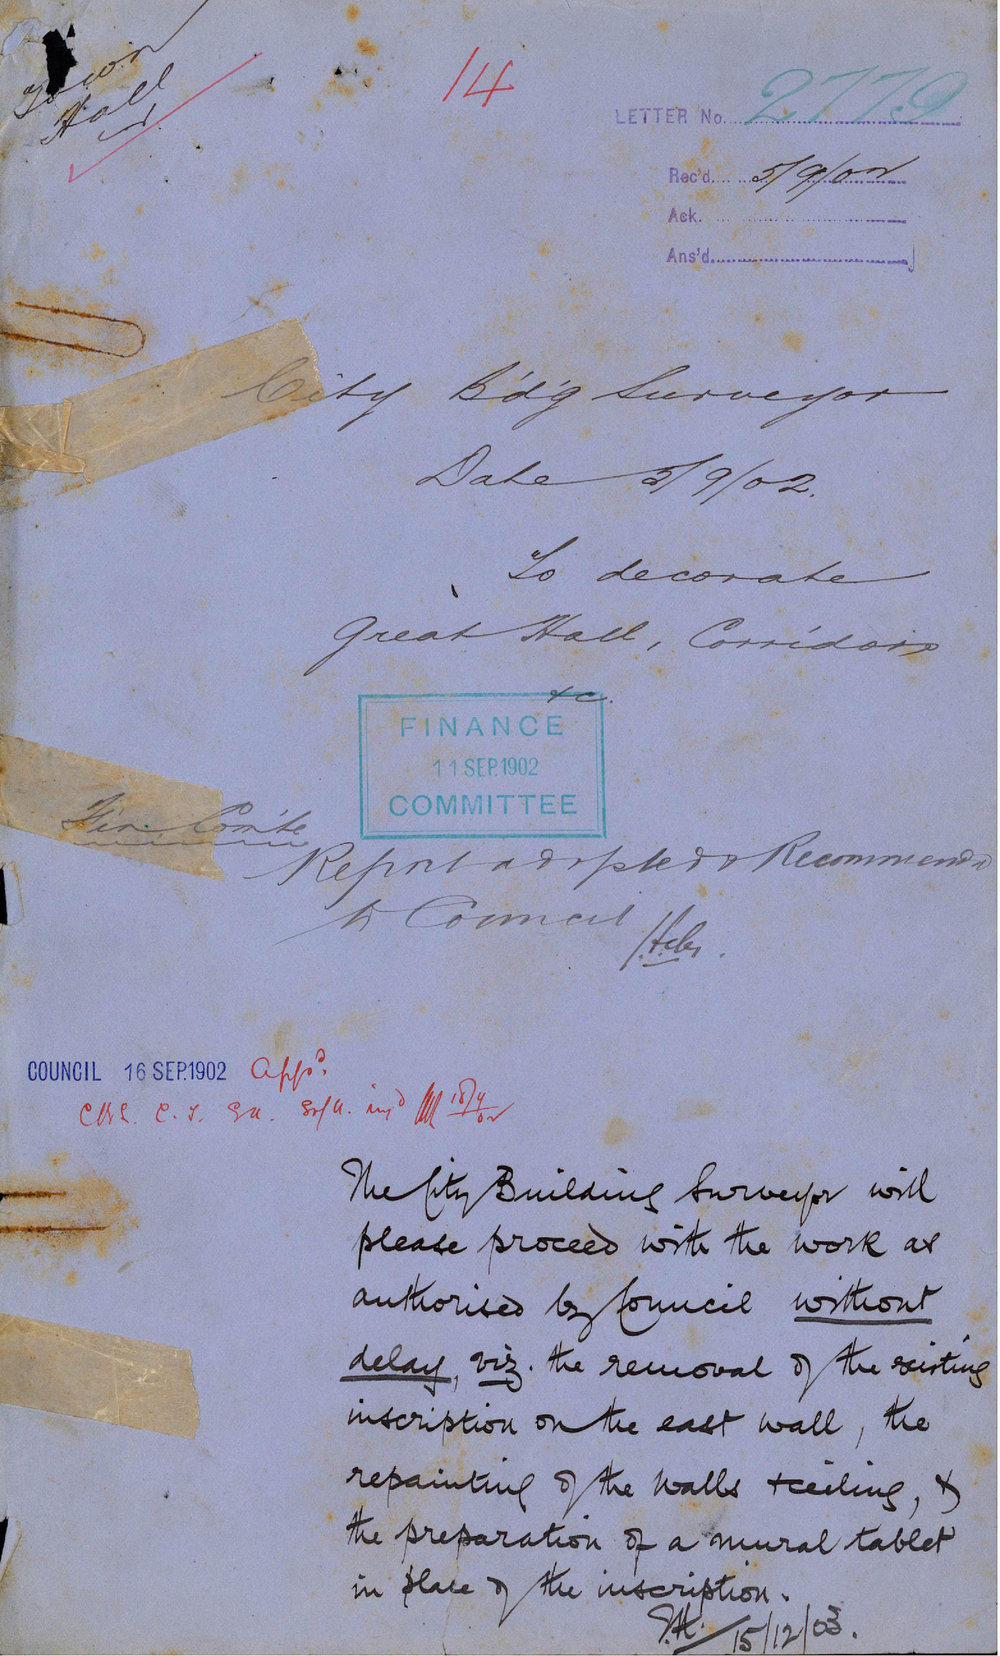 Town
Hall
14
LETTER No. 2779
Rec'd. 5/9/02
Ack.
Ans'd.
City B'd'g Surveyor
Date 5/9/02.
To decorate
Great Hall, Corridors
&c.
FINANCE
11 SEP. 1902
COMMITTEE
Fin. Com'te
Report adopted & Recommend
to Council
COUNCIL 16 SEP. 1902 App'd.
The City Building Surveyor will
please proceed with the work as
authorised by Council without
delay, viz. the removal of the existing
inscription on the east wall, the
repainting of the walls & ceiling, &
the preparation of a mural tablet
in place of the inscription.
15/12/03.